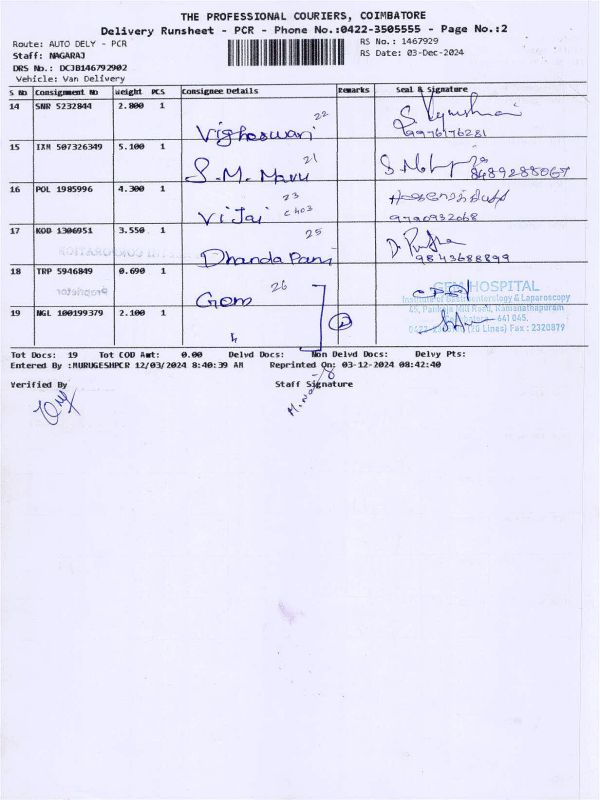 THE PROFESSIONAL COURIERS, COIMBATORE
Delivery Runsheet - PCR - Phone No.:0422-3505555 - Page No.:2
Route: AUTO DELY - PCR
RS No.: 1467929
Staff: NAGARAJ
RS Date: 03-Dec-2024
DRS No.: DCJB146792902
Vehicle: Van Delivery
S No Consignment No Weight PCS Consignee Details Remarks Seal & Signature
14 SNR 5232844 2.800 1 22
Vigheswari 9976176281
15 IXM 507326349 5.100 1 21
S.M. Maru 8489288067
16 POL 1985996 4.300 1 23
Vijai 9790932068
17 KOD 1306951 3.550 1 25
Dhanda Pani 9843688899
18 TRP 5946849 0.690 1 Gem 26
GEM HOSPITAL
Institute of Gastroenterology & Laparoscopy
45, Pankaja Mill Road, Ramanathapuram
Coimbatore - 641 045.
(20 Lines) Fax : 2320879
Proprietor
CORPORATION
19 NGL 100199379 2.100 1 2
Tot Docs: 19 Tot COD Amt: 0.00 Delvd Docs: Non Delvd Docs: Delvy Pts:
Entered By :MURUGESHPCR 12/03/2024 8:40:39 AM Reprinted On: 03-12-2024 08:42:40
Verified By Staff Signature